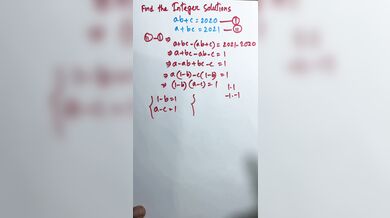 Find the Integer Solutions
ab+c = 2020 — (i)
a+bc = 2021 — (ii)
(ii)-(i) ⇒ a+bc-(ab+c) = 2021-2020
⇒ a+bc-ab-c = 1
⇒ a-ab+bc-c = 1
⇒ a(1-b)-c(1-b) = 1
⇒ (1-b)(a-c) = 1
1·1
-1·-1
{ 1-b=1 }
{ a-c=1 }